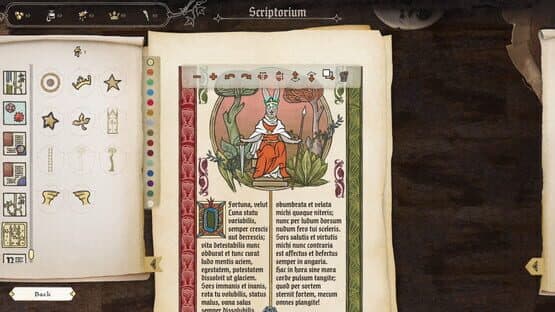 Scriptorium
Fortuna, velut
Luna statu
variabilis,
semper crescis
aut decrescis;
vita detestabilis nunc
obdurat et tunc curat
ludo mentis aciem,
egestatem, potestatem
dissolvit ut glaciem.
Sors immanis et inanis,
rota tu volubilis, status
malus, vana salus
semper dissolubilis
obumbrata et velata
michi quoque niteris;
nunc per ludum dorsum
nudum fero tui sceleris.
Sors salutis et virtutis
michi nunc contraria
est affectus et defectus
semper in angaria.
Hac in hora sine mora
corde pulsum tangite;
quod per sortem
sternit fortem, mecum
omnes plangite!
Back